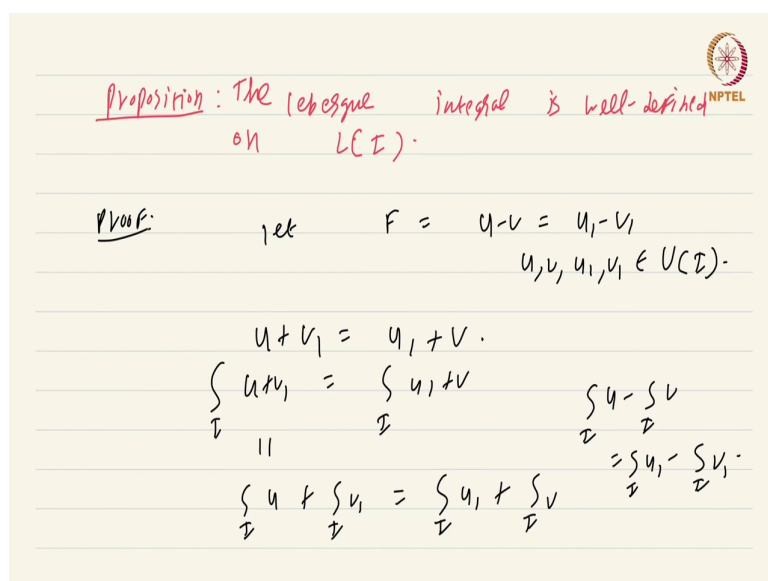 Proposition: The lebesgue integral is well-defined
on L(I).
NPTEL
Proof. let F = u-v = u₁-v₁
u,v, u₁,v₁ ∈ U(I).
u+v₁ = u₁+v.
∫_I u+v₁ = ∫_I u₁+v
||
∫_I u + ∫_I v₁ = ∫_I u₁ + ∫_I v
∫_I u - ∫_I v
= ∫_I u₁ - ∫_I v₁.